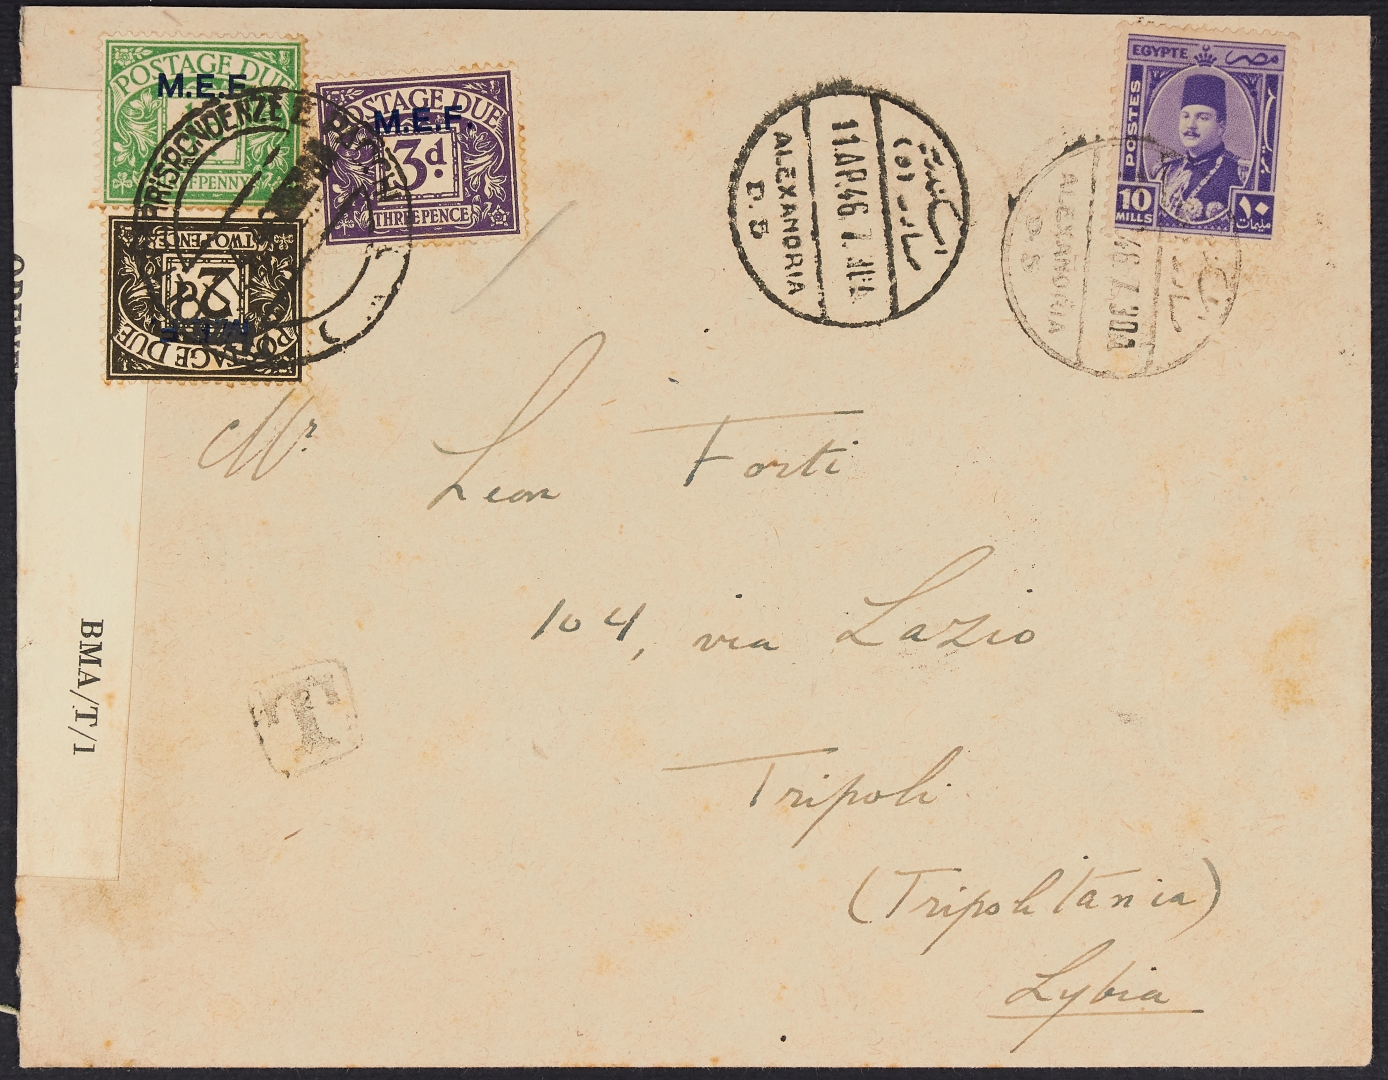 POSTAGE DUE
M.E.F.
HALFPENNY
POSTAGE DUE
M.E.F.
3d.
THREE PENCE
POSTAGE DUE
M.E.F.
2d
TWO PENCE
CORRISPONDENZE E PACCHI
ALEXANDRIA
D. 5
11 AP. 46. 7.
ALEXANDRIA
46. 7. 30
EGYPTE
مصر
POSTES
10
MILLS
١٠
مليمات
Mr Leon Forti
104, via Lazio
Tripoli
(Tripolitania)
Lybia
T
BMA/T/1